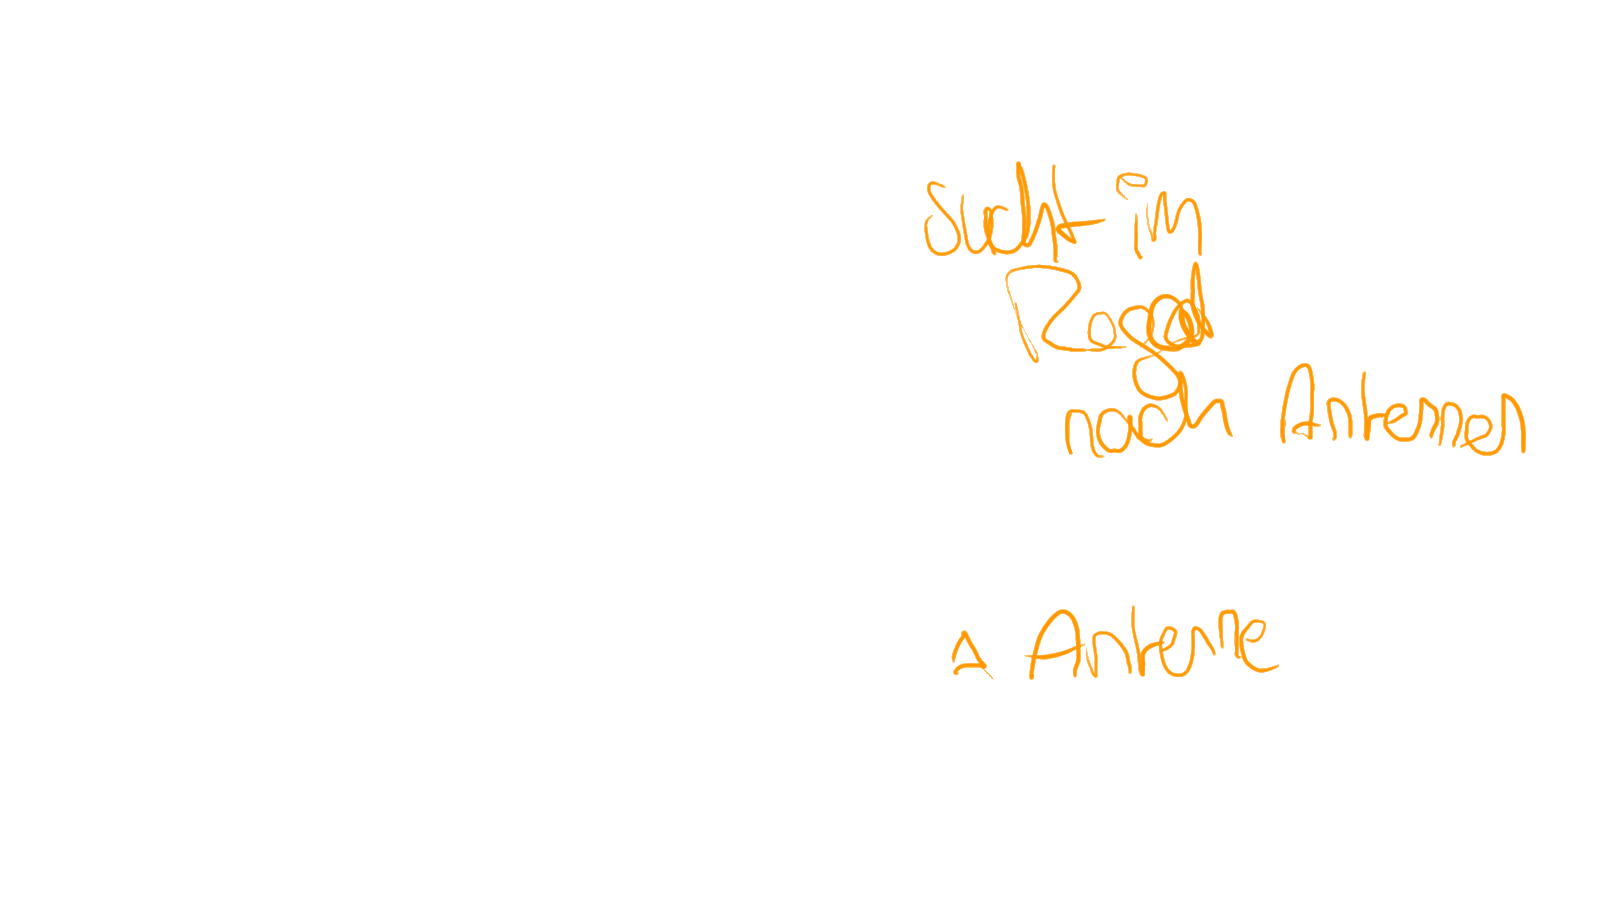 sucht im
Regal
nach Antennen
1 Antenne